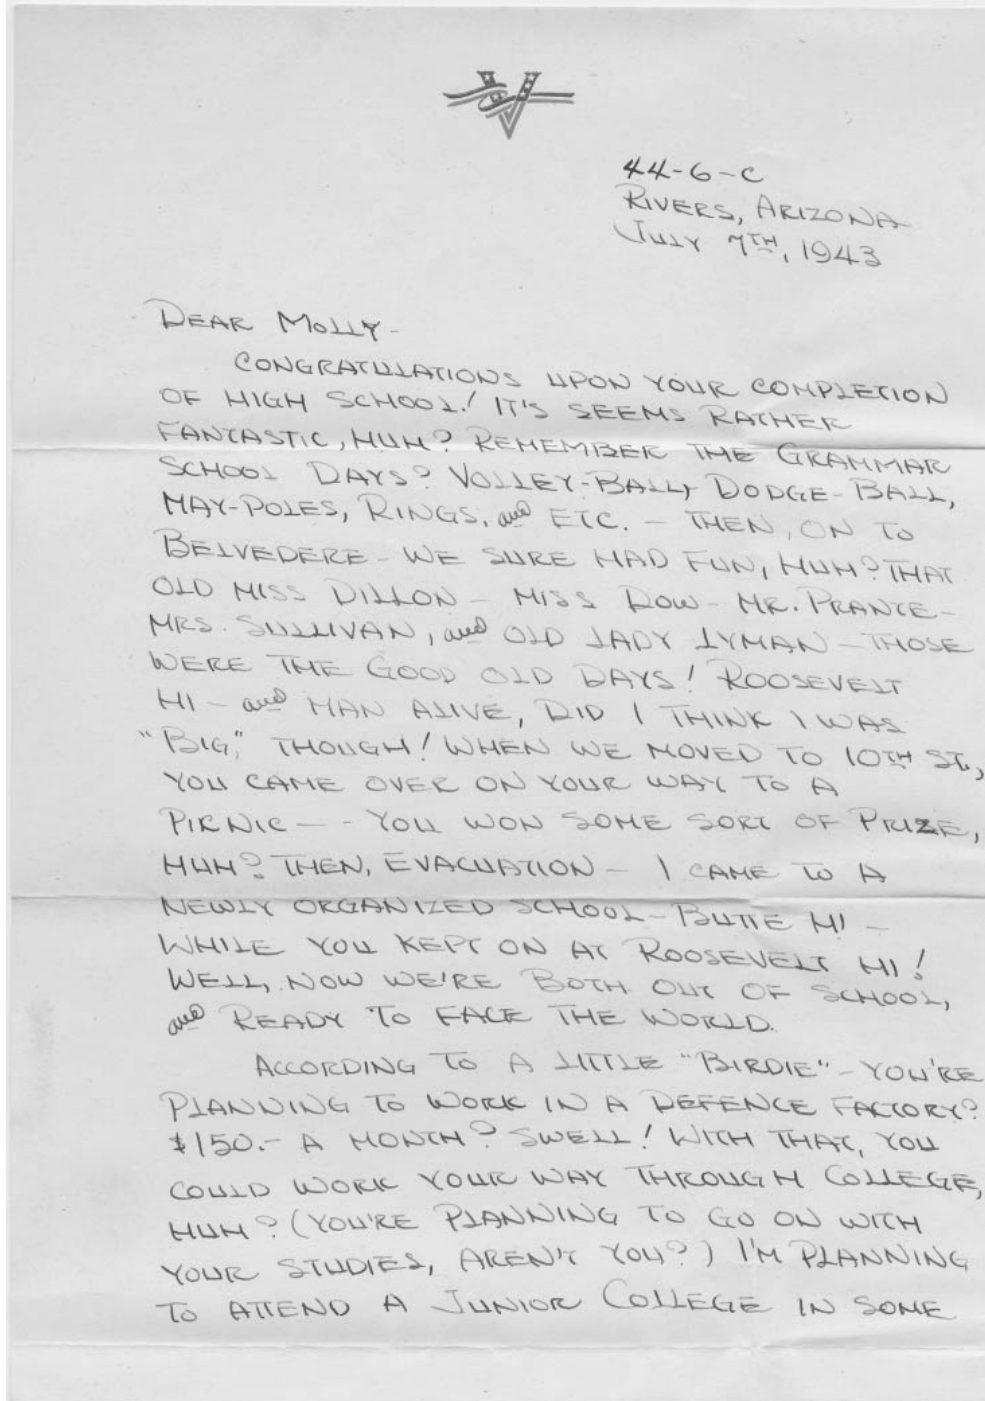 44-6-C
RIVERS, ARIZONA
JULY 7TH, 1943
DEAR MOLLY-
CONGRATULATIONS UPON YOUR COMPLETION
OF HIGH SCHOOL! IT'S SEEMS RATHER
FANTASTIC, HUH? REMEMBER THE GRAMMAR
SCHOOL DAYS? VOLLEY-BALL, DODGE-BALL,
MAY-POLES, RINGS, and ETC. - THEN, ON TO
BELVEDERE - WE SURE HAD FUN, HUH? THAT
OLD MISS DILLON - MISS DOW - MR. PRANTE -
MRS. SULLIVAN, and OLD LADY LYMAN - THOSE
WERE THE GOOD OLD DAYS! ROOSEVELT
HI - and MAN ALIVE, DID I THINK I WAS
"BIG," THOUGH! WHEN WE MOVED TO 10TH ST.,
YOU CAME OVER ON YOUR WAY TO A
PICNIC - - YOU WON SOME SORT OF PRIZE,
HUH? THEN, EVACUATION - I CAME TO A
NEWLY ORGANIZED SCHOOL - BUTTE HI -
WHILE YOU KEPT ON AT ROOSEVELT HI!
WELL, NOW WE'RE BOTH OUT OF SCHOOL,
and READY TO FACE THE WORLD.
ACCORDING TO A LITTLE "BIRDIE" - YOU'RE
PLANNING TO WORK IN A DEFENCE FACTORY?
$150.- A MONTH? SWELL! WITH THAT, YOU
COULD WORK YOUR WAY THROUGH COLLEGE,
HUH? (YOU'RE PLANNING TO GO ON WITH
YOUR STUDIES, AREN'T YOU?) I'M PLANNING
TO ATTEND A JUNIOR COLLEGE IN SOME